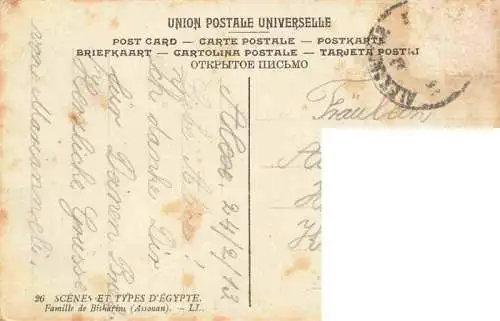 UNION POSTALE UNIVERSELLE
POST CARD — CARTE POSTALE — POSTKARTE
BRIEFKAART — CARTOLINA POSTALE — TARJETA POSTAL
ОТКРЫТОЕ ПИСЬМО
Alex. 24/2/13
ich danke Dir
für Deinen Brief
Herzliche Grüsse
von
Fräulein
26 SCÈNES ET TYPES D'ÉGYPTE.
Famille de Bisharins (Assouan). — LL.